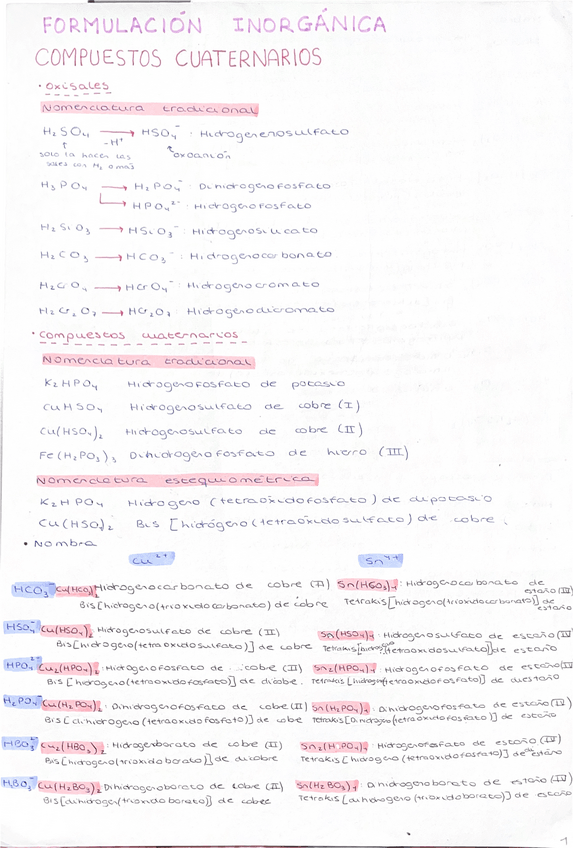 FORMULACIÓN INORGÁNICA
COMPUESTOS CUATERNARIOS
• Oxisales
Nomenclatura tradicional
H₂SO₄ → HSO₄⁻ : Hidrogenosulfato
-H⁺
solo lo hacen las
oxoanión
H₃PO₄ → H₂PO₄⁻ : Dihidrogenofosfato
→ HPO₄²⁻ : Hidrogenofosfato
H₂SiO₃ → HSiO₃⁻ : Hidrogenosilicato
H₂CO₃ → HCO₃⁻ : Hidrogenocarbonato
H₂CrO₄ → HCrO₄⁻ : Hidrogenocromato
H₂Cr₂O₇ → HCr₂O₇ : Hidrogenodicromato
• Compuestos cuaternarios
Nomenclatura tradicional
K₂HPO₄ Hidrogenofosfato de potasio
CuHSO₄ Hidrogenosulfato de cobre (I)
Cu(HSO₄)₂ Hidrogenosulfato de cobre (II)
Fe(H₂PO₃)₃ Dihidrogenofosfato de hierro (III)
Nomenclatura estequiométrica
K₂HPO₄ Hidrogeno (tetraóxidofosfato) de dipotasio
Cu(HSO)₂ Bis [hidrógeno(tetraóxidosulfato) de cobre.
• Nombra
Cu²⁺ Sn⁴⁺
HCO₃⁻ Cu(HCO₃)₂ Hidrogenocarbonato de cobre (II) Sn(HCO₃)₄ : Hidrogenocarbonato de estaño (IV)
Bis[hidrogeno(trioxidocarbonato) de cobre Tetrakis[hidrogeno(trioxidocarbonato)] de estaño
HSO₄⁻ Cu(HSO₄)₂ Hidrogenosulfato de cobre (II) Sn(HSO₄)₄ : Hidrogenosulfato de estaño (IV)
Bis[hidrogeno(tetraoxidosulfato)] de cobre Tetrakis[hidrogeno(tetraoxidosulfato)] de estaño
HPO₄²⁻ Cu₂(HPO₄)₂ : Hidrogenofosfato de cobre (II) Sn₂(HPO₄)₄ : Hidrogenofosfato de estaño (IV)
Bis [hidrogeno(tetraoxidofosfato)] de dicobre. Tetrakis [hidrogeno(tetraoxidofosfato)] de diestaño
H₂PO₄⁻ Cu(H₂PO₄)₂ : Dihidrogenofosfato de cobre (II) Sn(H₂PO₄)₄ : Dihidrogenofosfato de estaño (IV)
Bis [dihidrogeno(tetraoxidofosfato)] de cobre Tetrakis[Dihidrogeno(tetraoxidofosfato)] de estaño
HBO₃²⁻ Cu₂(HBO₃)₂ : Hidrogenoborato de cobre (II) Sn₂(HPO₄)₄ : Hidrogenofosfato de estaño (IV)
Bis[hidrogeno(trioxidoborato)] de dicobre Tetrakis [hidrogeno (tetraoxidofosfato)] de estaño
H₂BO₃⁻ Cu(H₂BO₃)₂ Dihidrogenoborato de cobre (II) Sn(H₂BO₃)₄ : Dihidrogenoborato de estaño (IV)
Bis[dihidrogeno(trioxidoborato)] de cobre Tetrakis[dihidrogeno(trioxidoborato)] de estaño
1